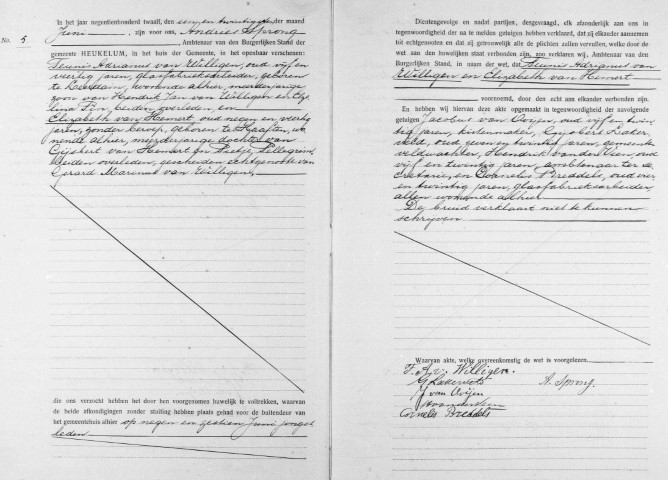 No. 5
In het jaar negentienhonderd twaalf, den zeven en twintigsten der maand
Juni, zijn voor ons, Andries Sprong
Ambtenaar van den Burgerlijken Stand der
gemeente HEUKELUM, in het huis der Gemeente, in het openbaar verschenen:
Teunis Adrianus van Willigen, oud vijf en
veertig jaren, glasfabrieksarbeider, geboren
te Leerdam, wonende alhier, meerderjarige
zoon van Hendrik Jan van Willigen en
beiden overleden en
Elizabeth van Hemert oud negen en veertig
jaren, zonder beroep, geboren te Haaften, wo-
nende alhier, meerderjarige dochter van
Gijsbert van Hemert en Pellegrim,
beiden overleden, gescheiden echtgenoote van
Gerard Marinus van Willigen,
die ons verzocht hebben het door hen voorgenomen huwelijk te voltrekken, waarvan
de beide afkondigingen zonder stuiting hebben plaats gehad voor de buitendeur van
het gemeentehuis alhier op negen en zestien Juni jongst-
leden
Dientengevolge en nadat partijen, desgevraagd, elk afzonderlijk aan ons in
tegenwoordigheid der na te melden getuigen hebben verklaard, dat zij elkander aannemen
tot echtgenooten en dat zij getrouwelijk alle de plichten zullen vervullen, welke door de
wet aan den huwelijken staat verbonden zijn, zoo verklaren wij, Ambtenaar van den
Burgerlijken Stand, in naam der wet, dat Teunis Adrianus van
Willigen en Elizabeth van Hemert
voornoemd, door den echt aan elkander verbonden zijn.
En hebben wij hiervan deze akte opgemaakt in tegenwoordigheid der navolgende
getuigen Jacobus van Ooijen, oud vijf en twin-
tig jaren, kistenmaker, Gijsbert Laker-
veld, oud zeven en twintig jaren, gemeente-
veldwachter, Hendrik oud
vijf en twintig jaren, ambtenaar ter se-
cretarie, en Cornelis Breddels, oud vier
en twintig jaren, glasfabrieksarbeider,
allen wonende alhier
De bruid verklaart niet te kunnen
schrijven.
Waarvan akte, welke overeenkomstig de wet is voorgelezen.
T. A. v. Willigen.
G Lakerveld
A. Sprong.
J van Ooijen
Cornelis Breddels